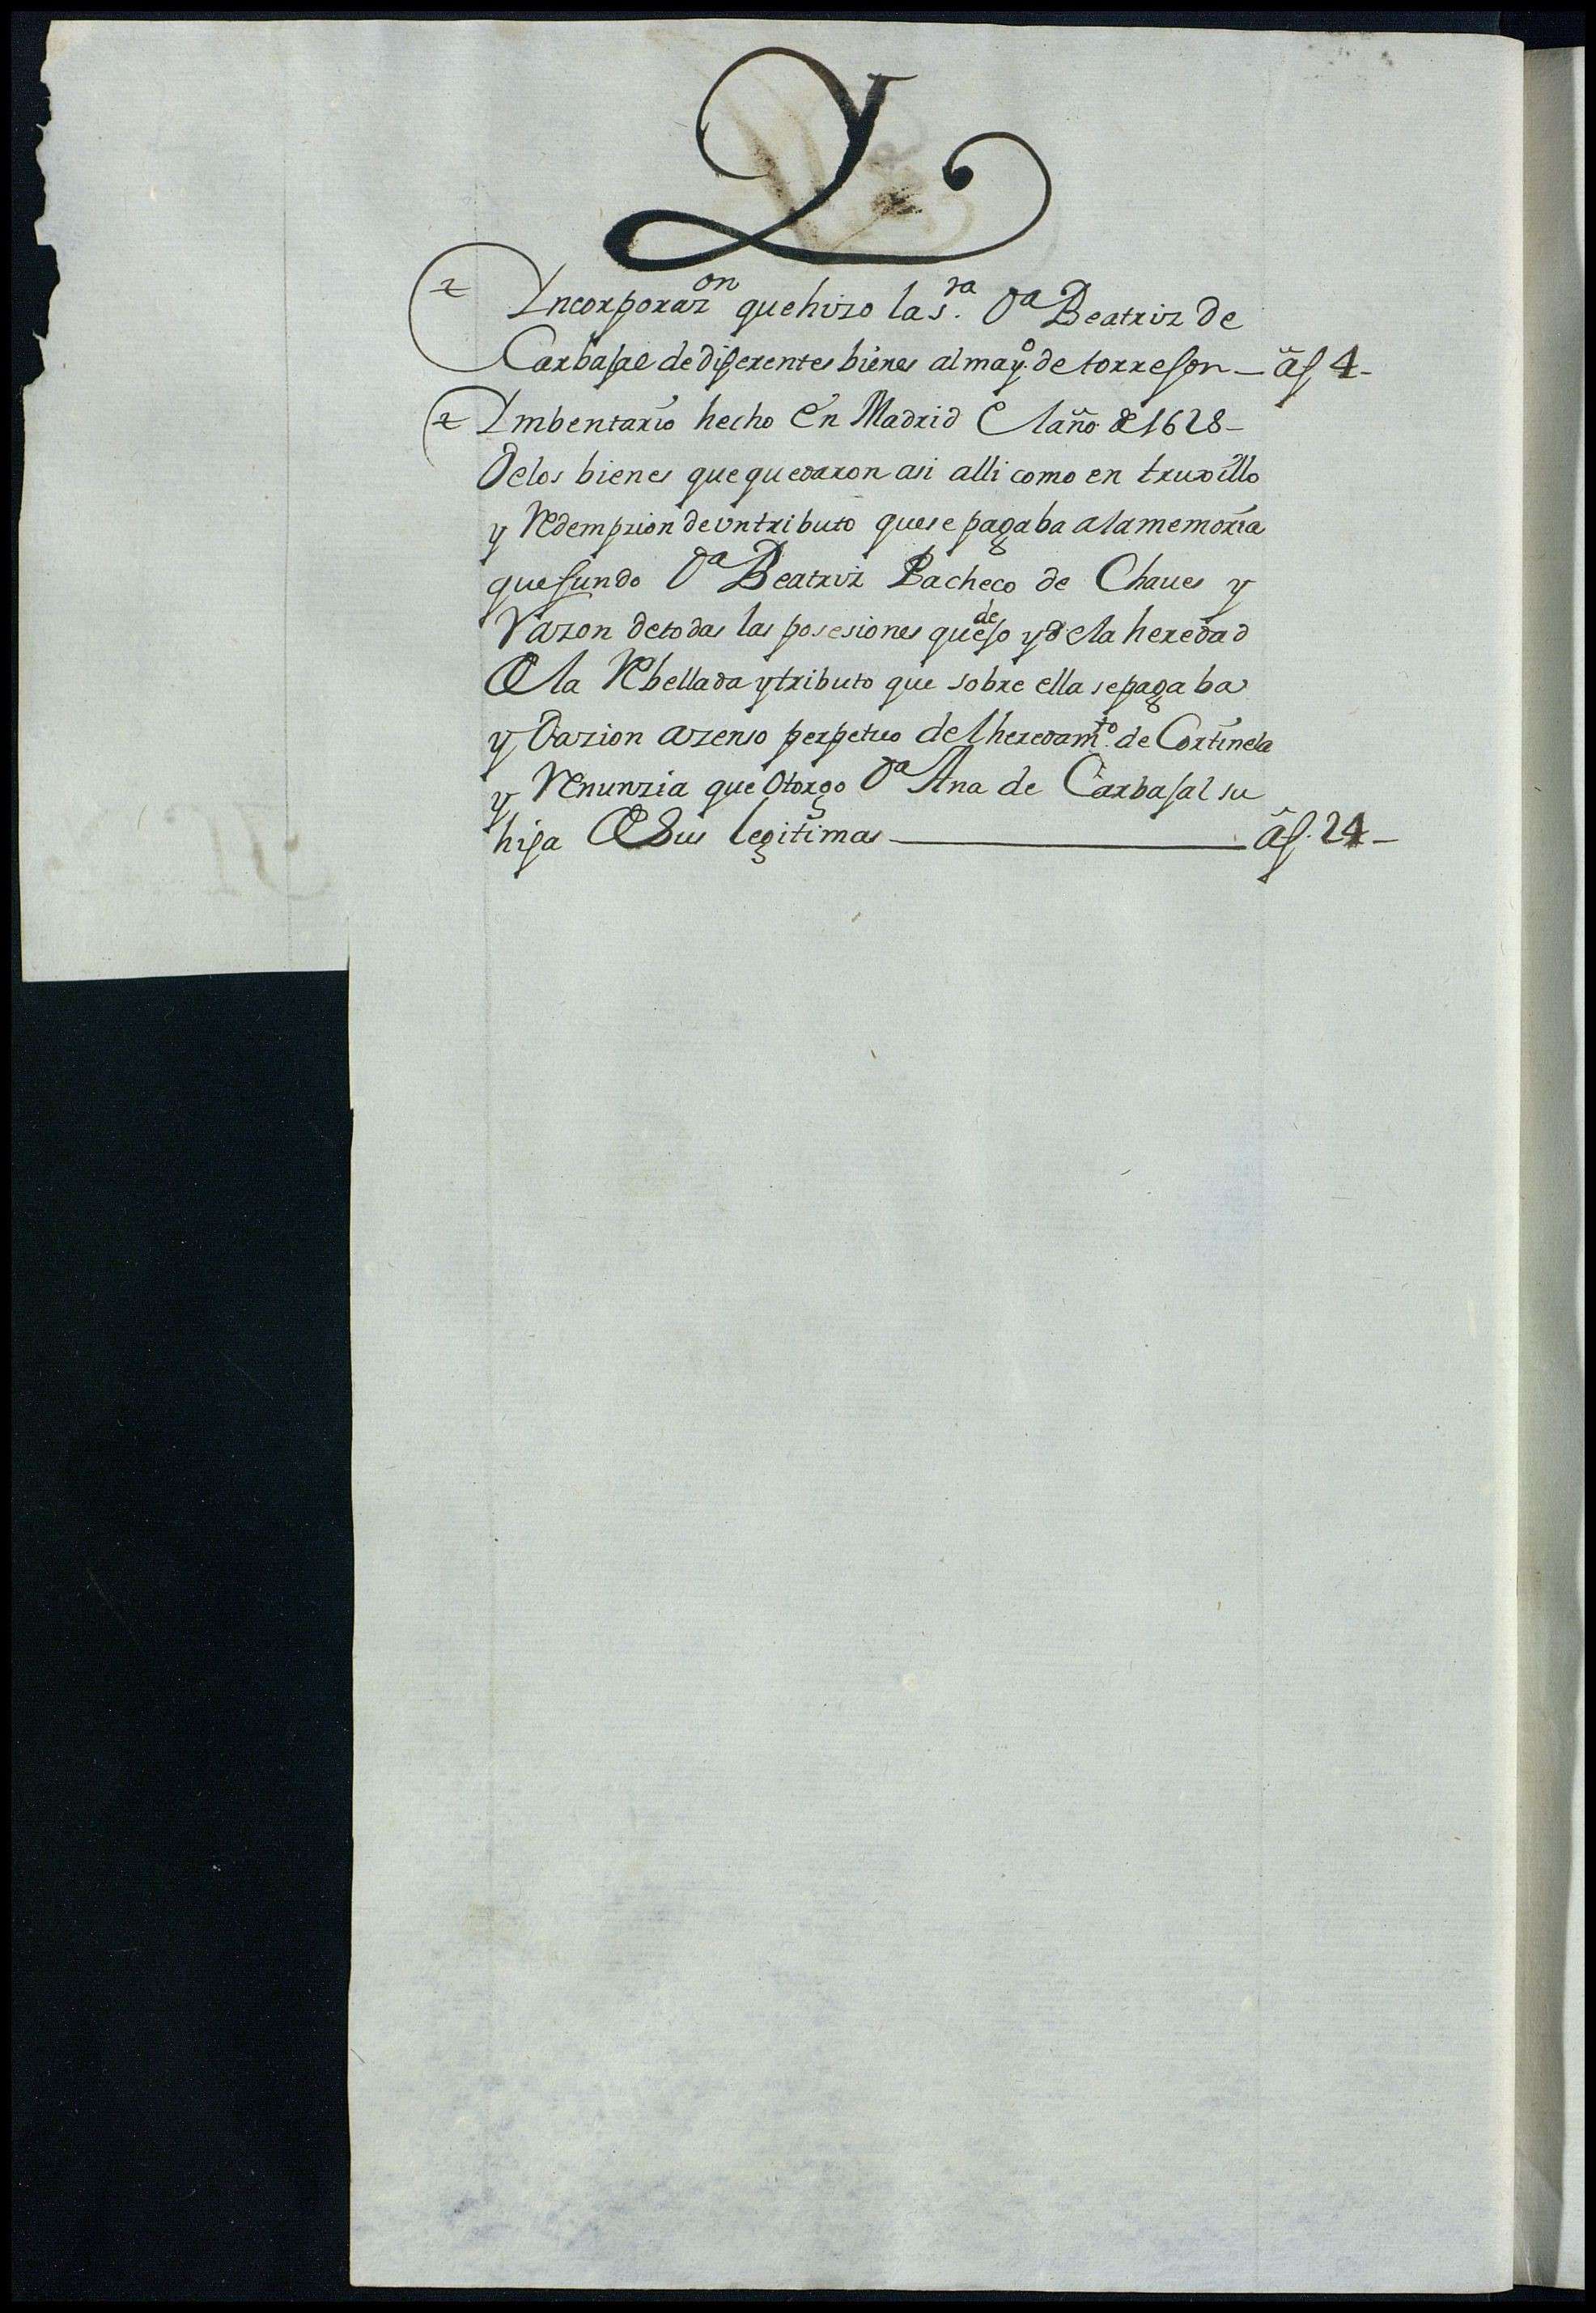 Y
Yncorporaz.on que hizo la s.ra D.a Beatriz de
Carbajal de diferentes bienes al may.o de torrejon — a f 4 –
Ymbentario hecho En Madrid El año de 1628 –
De los bienes que quedaron asi alli como en truxillo
y Redempzion de vn tributo que se pagaba a la memoria
que fundo D.a Beatriz Pacheco de Chaues y
Razon de todas las posesiones que dejo y de la heredad
De la Rebellada y tributo que sobre ella se pagaba
y Dazion a zenso perpetuo del heredam.to de Cortinela
y Renunzia que Otorgo D.a Ana de Carbajal su
hija De Sus legitimas — a f. 24 –